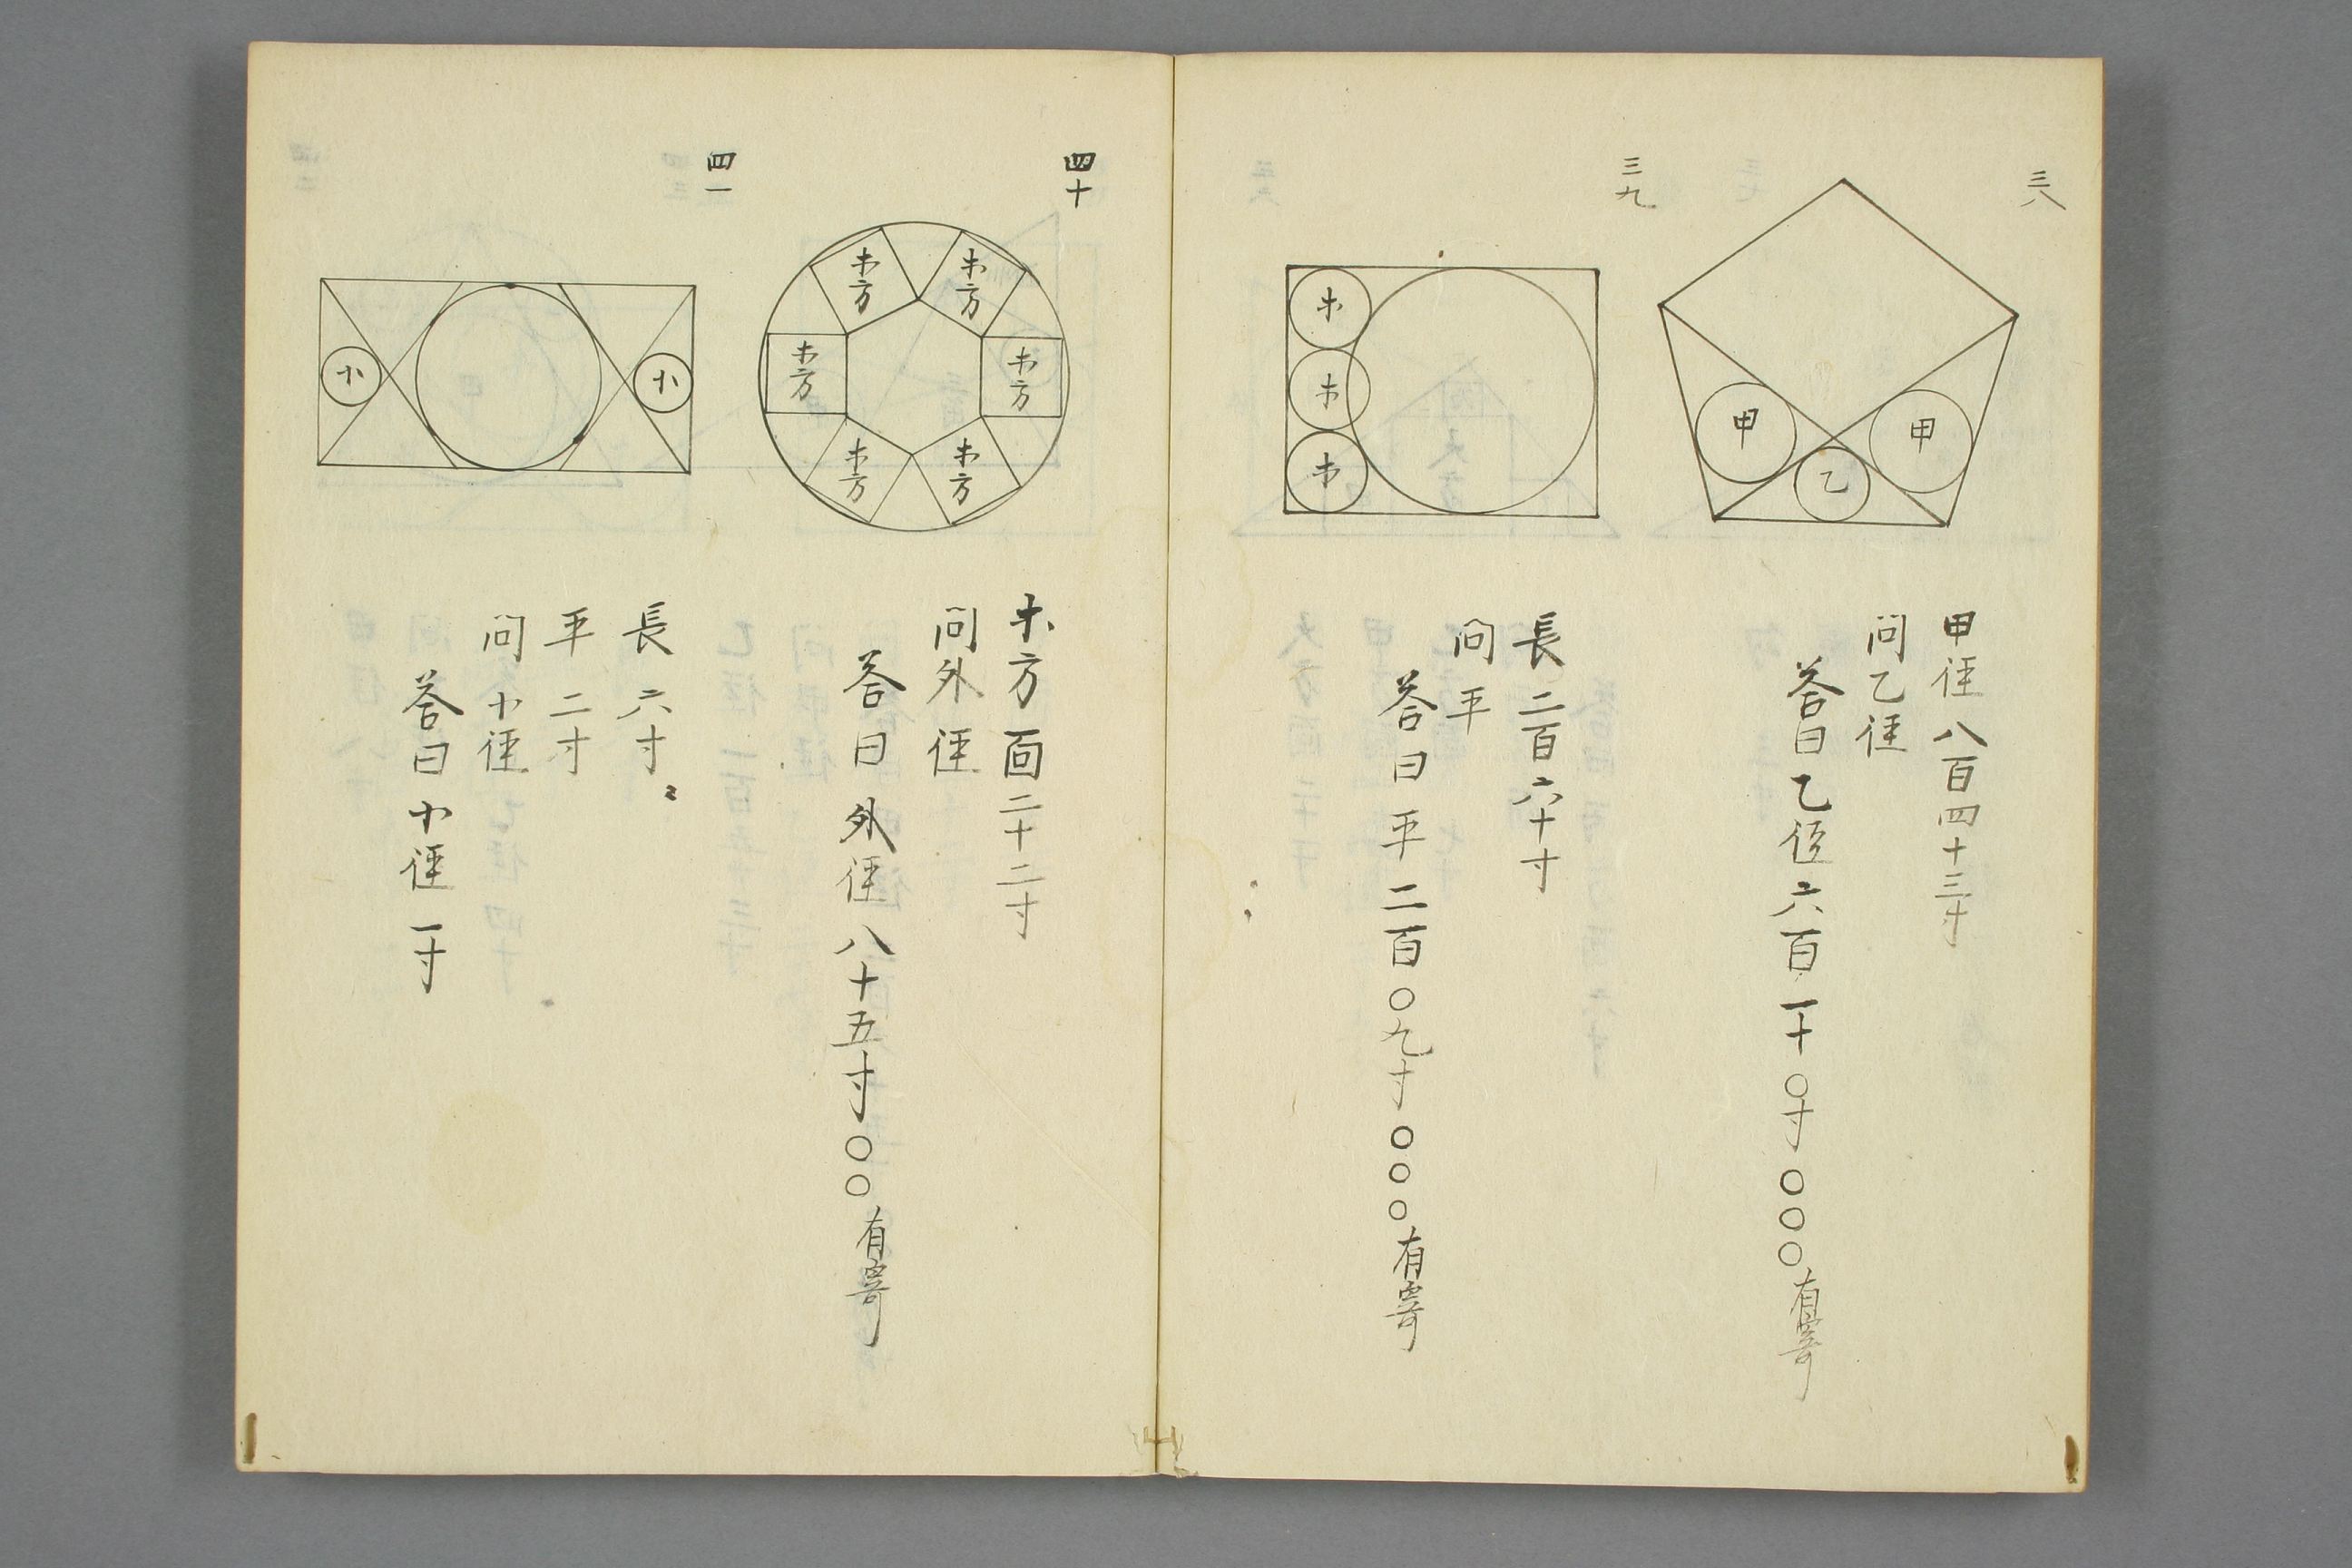 三八
甲
甲
乙
甲径八百四十三寸
問乙径
答曰乙径六百一十〇寸〇〇〇有寄
三九
木
木
木
長二百六十寸
問平
答曰平二百〇九寸〇〇〇有寄
四十
木方
木方
木方
木方
木方
木方
木方面二十二寸
問外径
答曰外径八十五寸〇〇有寄
四一
小
小
長六寸
平二寸
問小径
答曰小径一寸